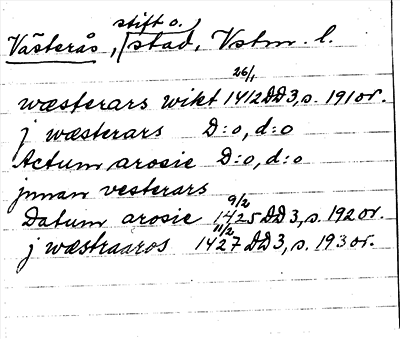 Västerås, stift o. stad, Vstm. l.
wæsterars wikt 26/1 1412 DD3, s. 191 or.
j wæsterars D:o, d:o
Actum arosie D:o, d:o
jnnan vesterars
Datum arosie 9/2 1425 DD3, s. 192 or.
j wæstraaros 11/2 1427 DD3, s. 193 or.